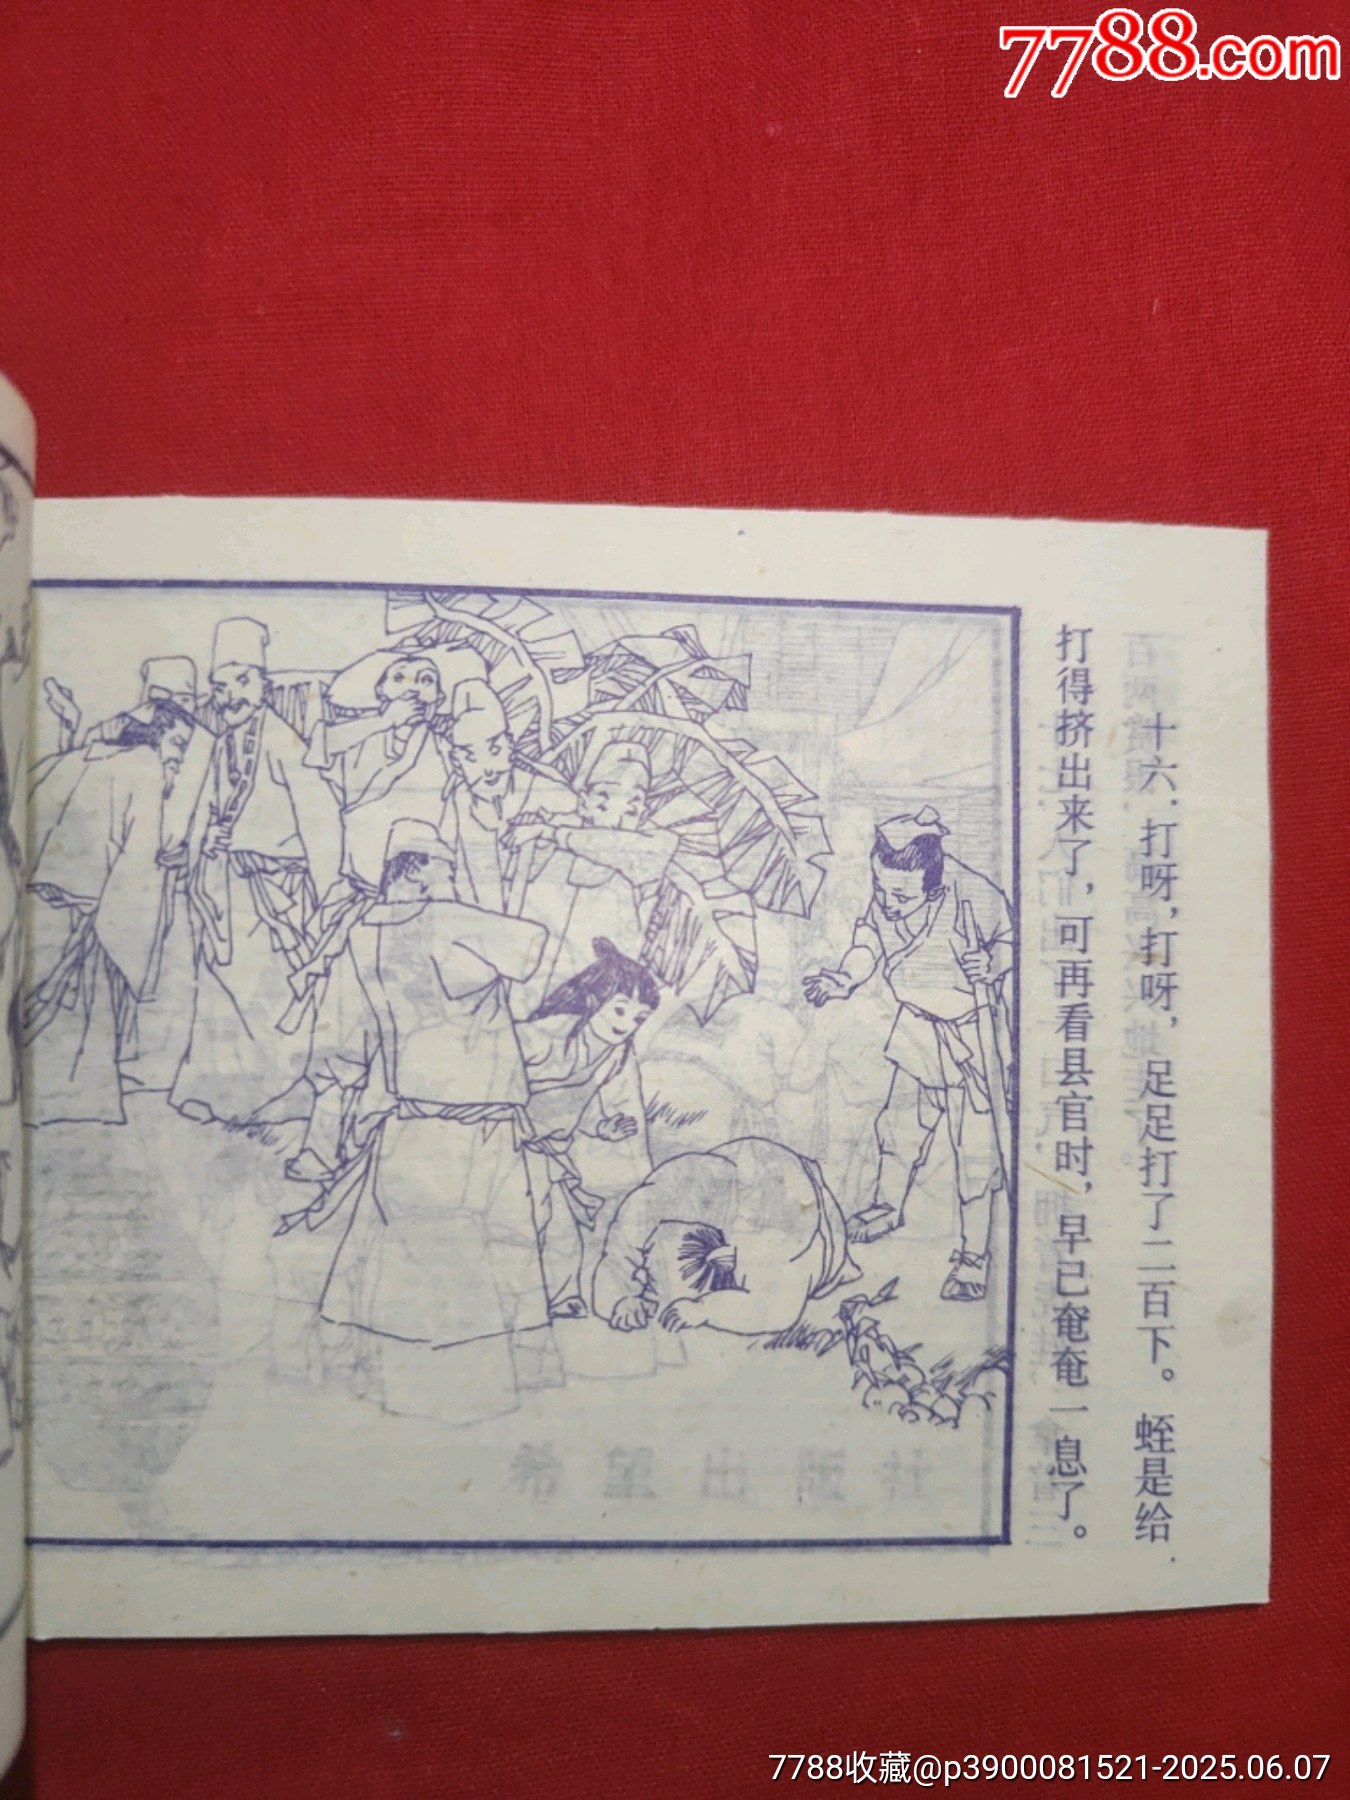 7788.com
十六.打呀,打呀,足足打了二百下。蛭是给
打得挤出来了,可再看县官时,早已奄奄一息了。
希望出版社
7788收藏@p3900081521-2025.06.07